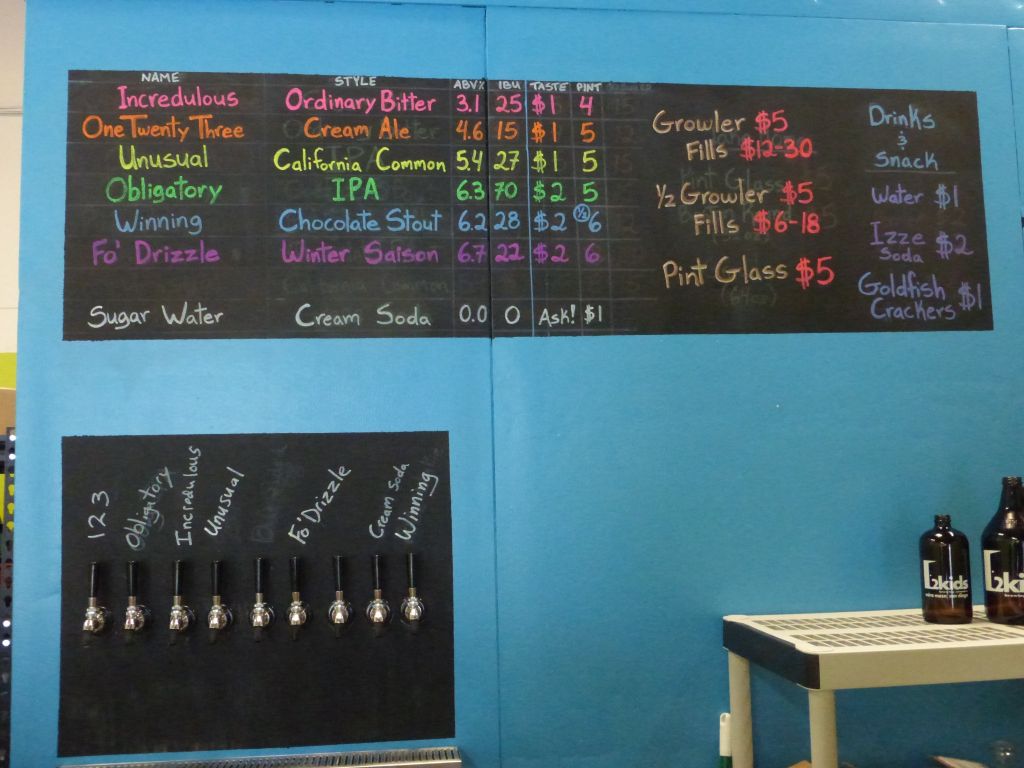 NAME STYLE ABV% IBU TASTE PINT
Incredulous Ordinary Bitter 3.1 25 $1 4
One Twenty Three Cream Ale 4.6 15 $1 5
Unusual California Common 5.4 27 $1 5
Obligatory IPA 6.3 70 $2 5
Winning Chocolate Stout 6.2 28 $2 ½ 6
Fo' Drizzle Winter Saison 6.7 22 $2 6
Sugar Water Cream Soda 0.0 0 Ask! $1
Growler $5
Fills $12-30
½ Growler $5
Fills $6-18
Pint Glass $5
Drinks
&
Snack
Water $1
Izze
Soda $2
Goldfish
Crackers $1
123
Obligatory
Incredulous
Unusual
Fo' Drizzle
Cream Soda
Winning
2kids
2ki